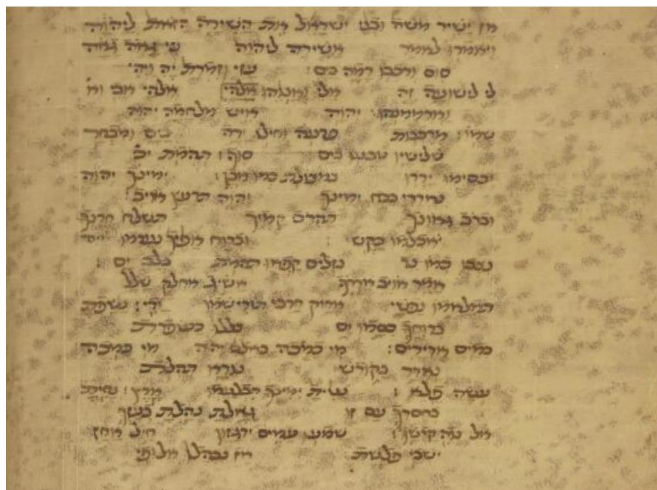 אז ישיר משה ובני ישראל את השירה הזאת ליהוה
ויאמרו לאמר אשירה ליהוה כי גאה גאה
סוס ורכבו רמה בים : עזי וזמרת יה ויהי
לי לישועה זה אלי ואנוהו אלהי אלהי אבי וא
וארממנהו יהוה איש מלחמה יהוה
שמו : מרכבות פרעה וחילו ירה בים ומבחר
שלישיו טבעו בים סוף : תהמת יכ
יכסימו ירדו במצולת כמו אבן : ימינך יהוה
נאדרי בכח ימינך יהוה תרעץ אויב :
וברב גאונך תהרס קמיך תשלח חרנך
יאכלמו כקש : וברוח אפיך נערמו
נצבו כמו נד נזלים קפאו תהמת בלב ים :
אמר אויב ארדף אשיג אחלק שלל
תמלאמו נפשי אריק חרבי תורישמו ידי : נשפת
ברוחך כסמו ים צללו כעופרת
במים אדירים : מי כמכה באלם יהוה מי כמכה
נאדר בקודש נורא תהלת
עשה פלא : נטית ימינך תבלעמו ארץ : נחית
בחסדך עם זו גאלת נהלת בעזך
אל נוה קדשך : שמעו עמים ירגזון חיל אחז
ישבי פלשת אז נבהלו אלופי